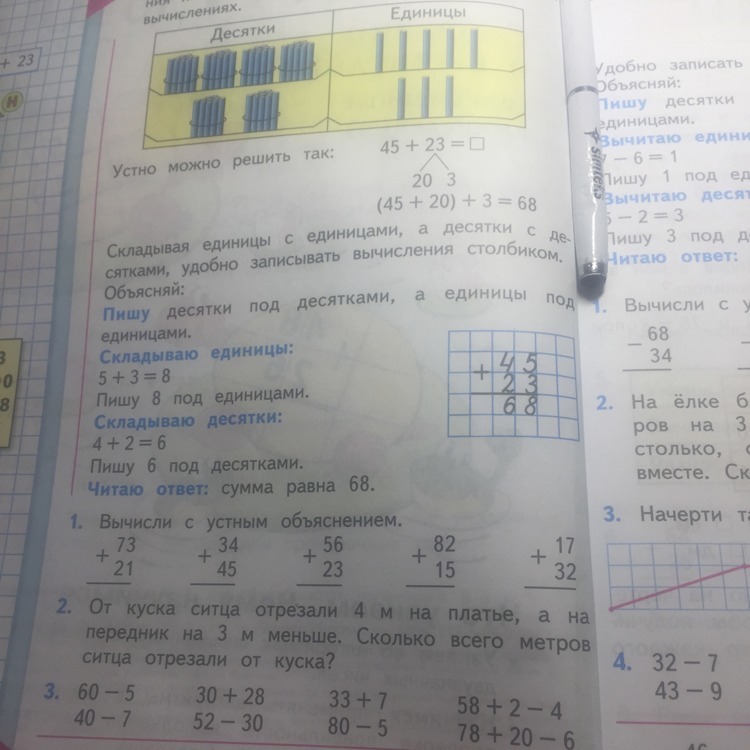 вычислениях.
Десятки Единицы
+ 23
Н
Устно можно решить так: 45 + 23 = □
20 3
(45 + 20) + 3 = 68
Складывая единицы с единицами, а десятки с де-
сятками, удобно записывать вычисления столбиком.
Объясняй:
Пишу десятки под десятками, а единицы под
единицами.
Складываю единицы:
5 + 3 = 8
Пишу 8 под единицами.
Складываю десятки:
4 + 2 = 6
Пишу 6 под десятками.
Читаю ответ: сумма равна 68.
+ 45
23
68
1. Вычисли с устным объяснением.
+ 73 + 34 + 56 + 82 + 17
21 45 23 15 32
2. От куска ситца отрезали 4 м на платье, а на
передник на 3 м меньше. Сколько всего метров
ситца отрезали от куска?
3. 60 − 5 30 + 28 33 + 7 58 + 2 − 4
40 − 7 52 − 30 80 − 5 78 + 20 − 6
simtels
Удобно записать
Объясняй:
Пишу десятки
единицами.
Вычитаю
− 6 = 1
Пишу 1 под
Вычитаю
5 − 2 = 3
Пишу 3 под
Читаю ответ:
1. Вычисли с
− 68
34
2. На ёлке
на 3
столько,
вместе.
3. Начерти
4. 32 − 7
43 − 9